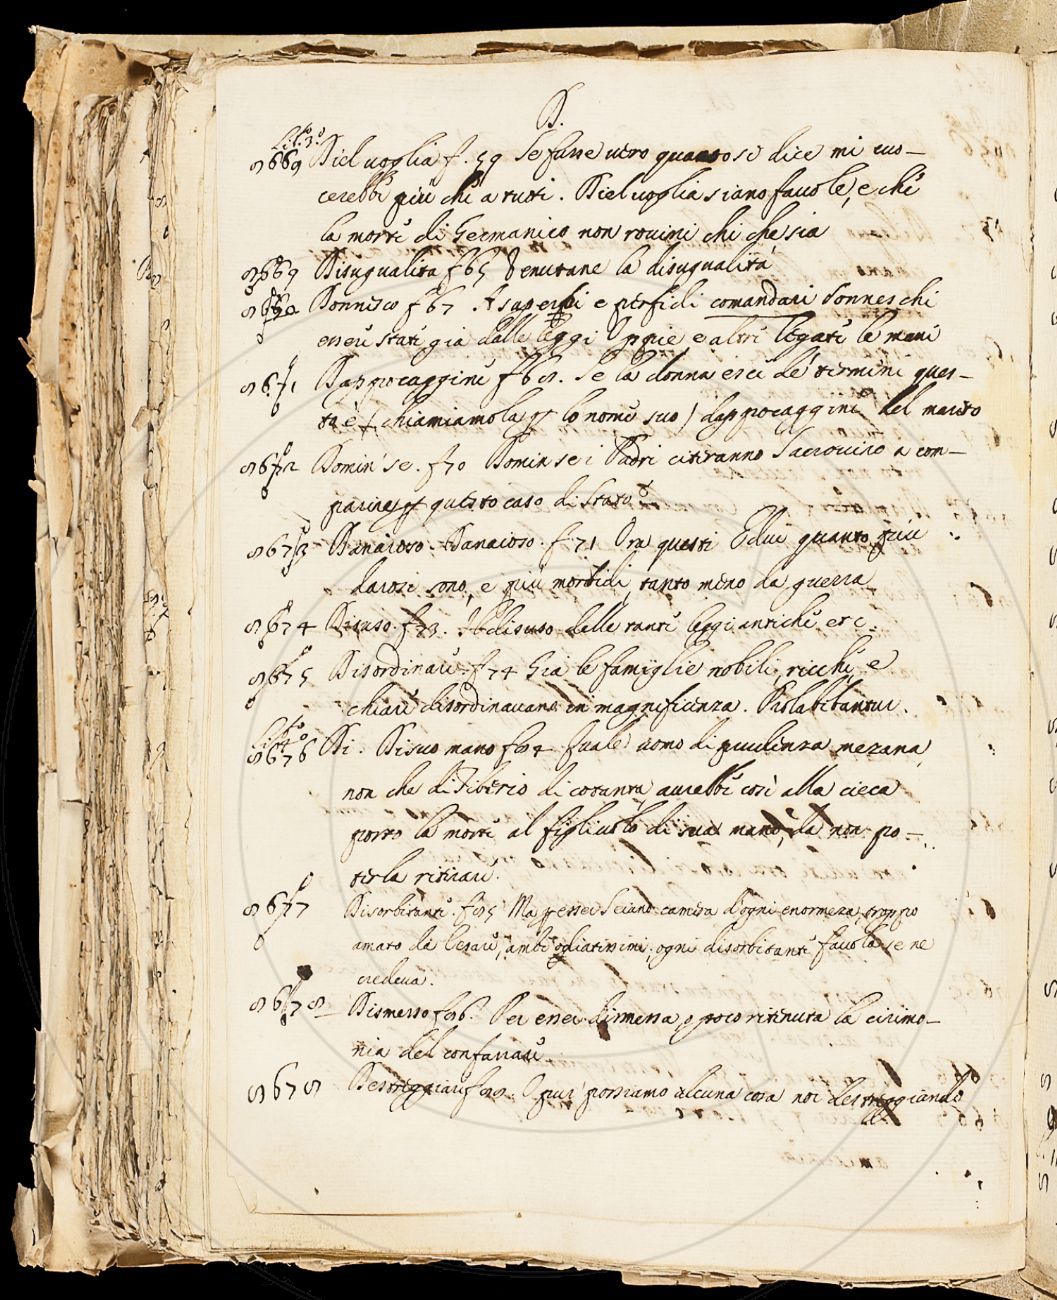 D.
Lib. 3.o
8669 Diel voglia f. 59 Se fusse vero quanto si dice mi cuo-
cerebbe più che a tutti. Diel voglia siano favole, e che
la morte di Germanico non rovini chi che sia
8669 Disugualità f 65 Venutane la disugualità
8670 Donnisco f 67. A superbi e perfidi comandari donneschi
essere stati già dalle leggi Oppie e altri legati le mani
8671 Dappocaggine f 68. Se la donna esce de termini ques-
ta è (chiamiamola p lo nome suo) dappocaggine del marito
8672 Domin' se. f 70 Domin se i Padri citeranno Sacroviro a com-
parire p questo caso di Stato?
8673 Danaioso. Danaioso. f 71 Ora questi Edui quanto più
danaiosi sono, e più morbidi, tanto meno da guerra
8674 Disuso. f 73. Il disuso delle tante leggi antiche etc.
8675 Disordinare. f 74 Già le famiglie nobili, ricche, e
chiare disordinavano in magnificenza. Prolabebantur.
Lib. 4.o
8676 Di. Di suo mano f 84. Quale uomo di prudenza mezana,
non che di Tiberio di cotanta avrebbe così alla cieca
porto la morte al figliuolo di sua mano, da non po-
terla ritirare.
8677 Disorbitante. f 85 Ma p esser Seiano camera d'ogni enormeza, troppo
amato da Cesare, ambi odiatissimi, ogni disorbitante favola se ne
credeva.
8678 Dismesso f 86. Per esser dismessa, o poco ritinuta la cirimo-
nia del confarrare
8678 Destreggiare f 88. O pure possiamo alcuna cosa noi destreggiando